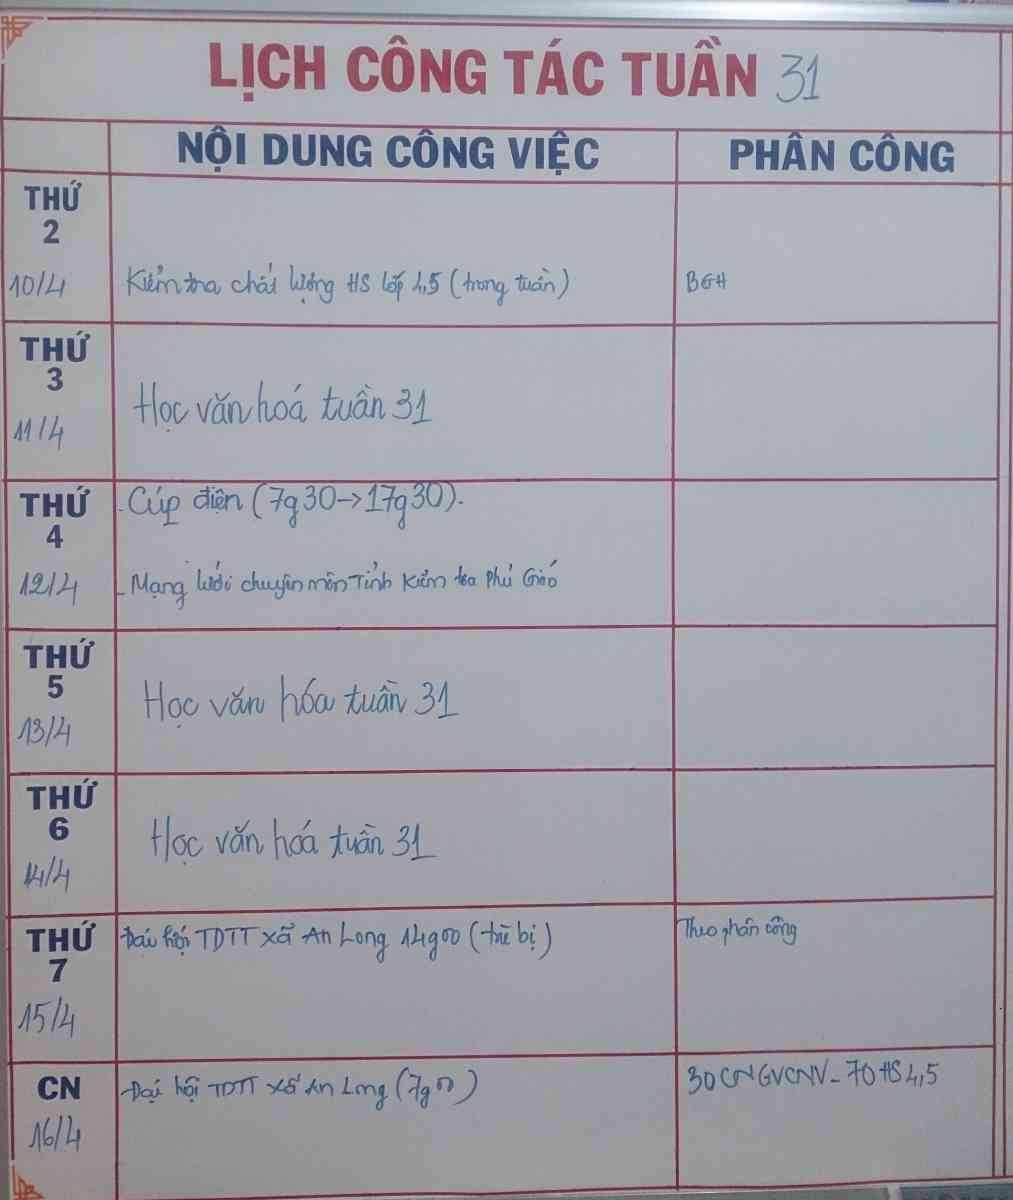 LỊCH CÔNG TÁC TUẦN 31
NỘI DUNG CÔNG VIỆC
PHÂN CÔNG
THỨ
2
10/4
Kiểm tra chất lượng HS lớp 4,5 (trong tuần)
BGH
THỨ
3
11/4
Học văn hoá tuần 31
THỨ
4
12/4
- Cúp điện (7g30→17g30).
- Mạng lưới chuyên môn Tỉnh kiểm tra Phú Giáo
THỨ
5
13/4
Học văn hóa tuần 31
THỨ
6
14/4
Học văn hoá tuần 31
THỨ
7
15/4
Đại hội TDTT xã An Long 14g00 (trù bị)
Theo phân công
CN
16/4
Đại hội TDTT xã An Long (7g00)
30 CNGVCNV - 70 HS 4,5